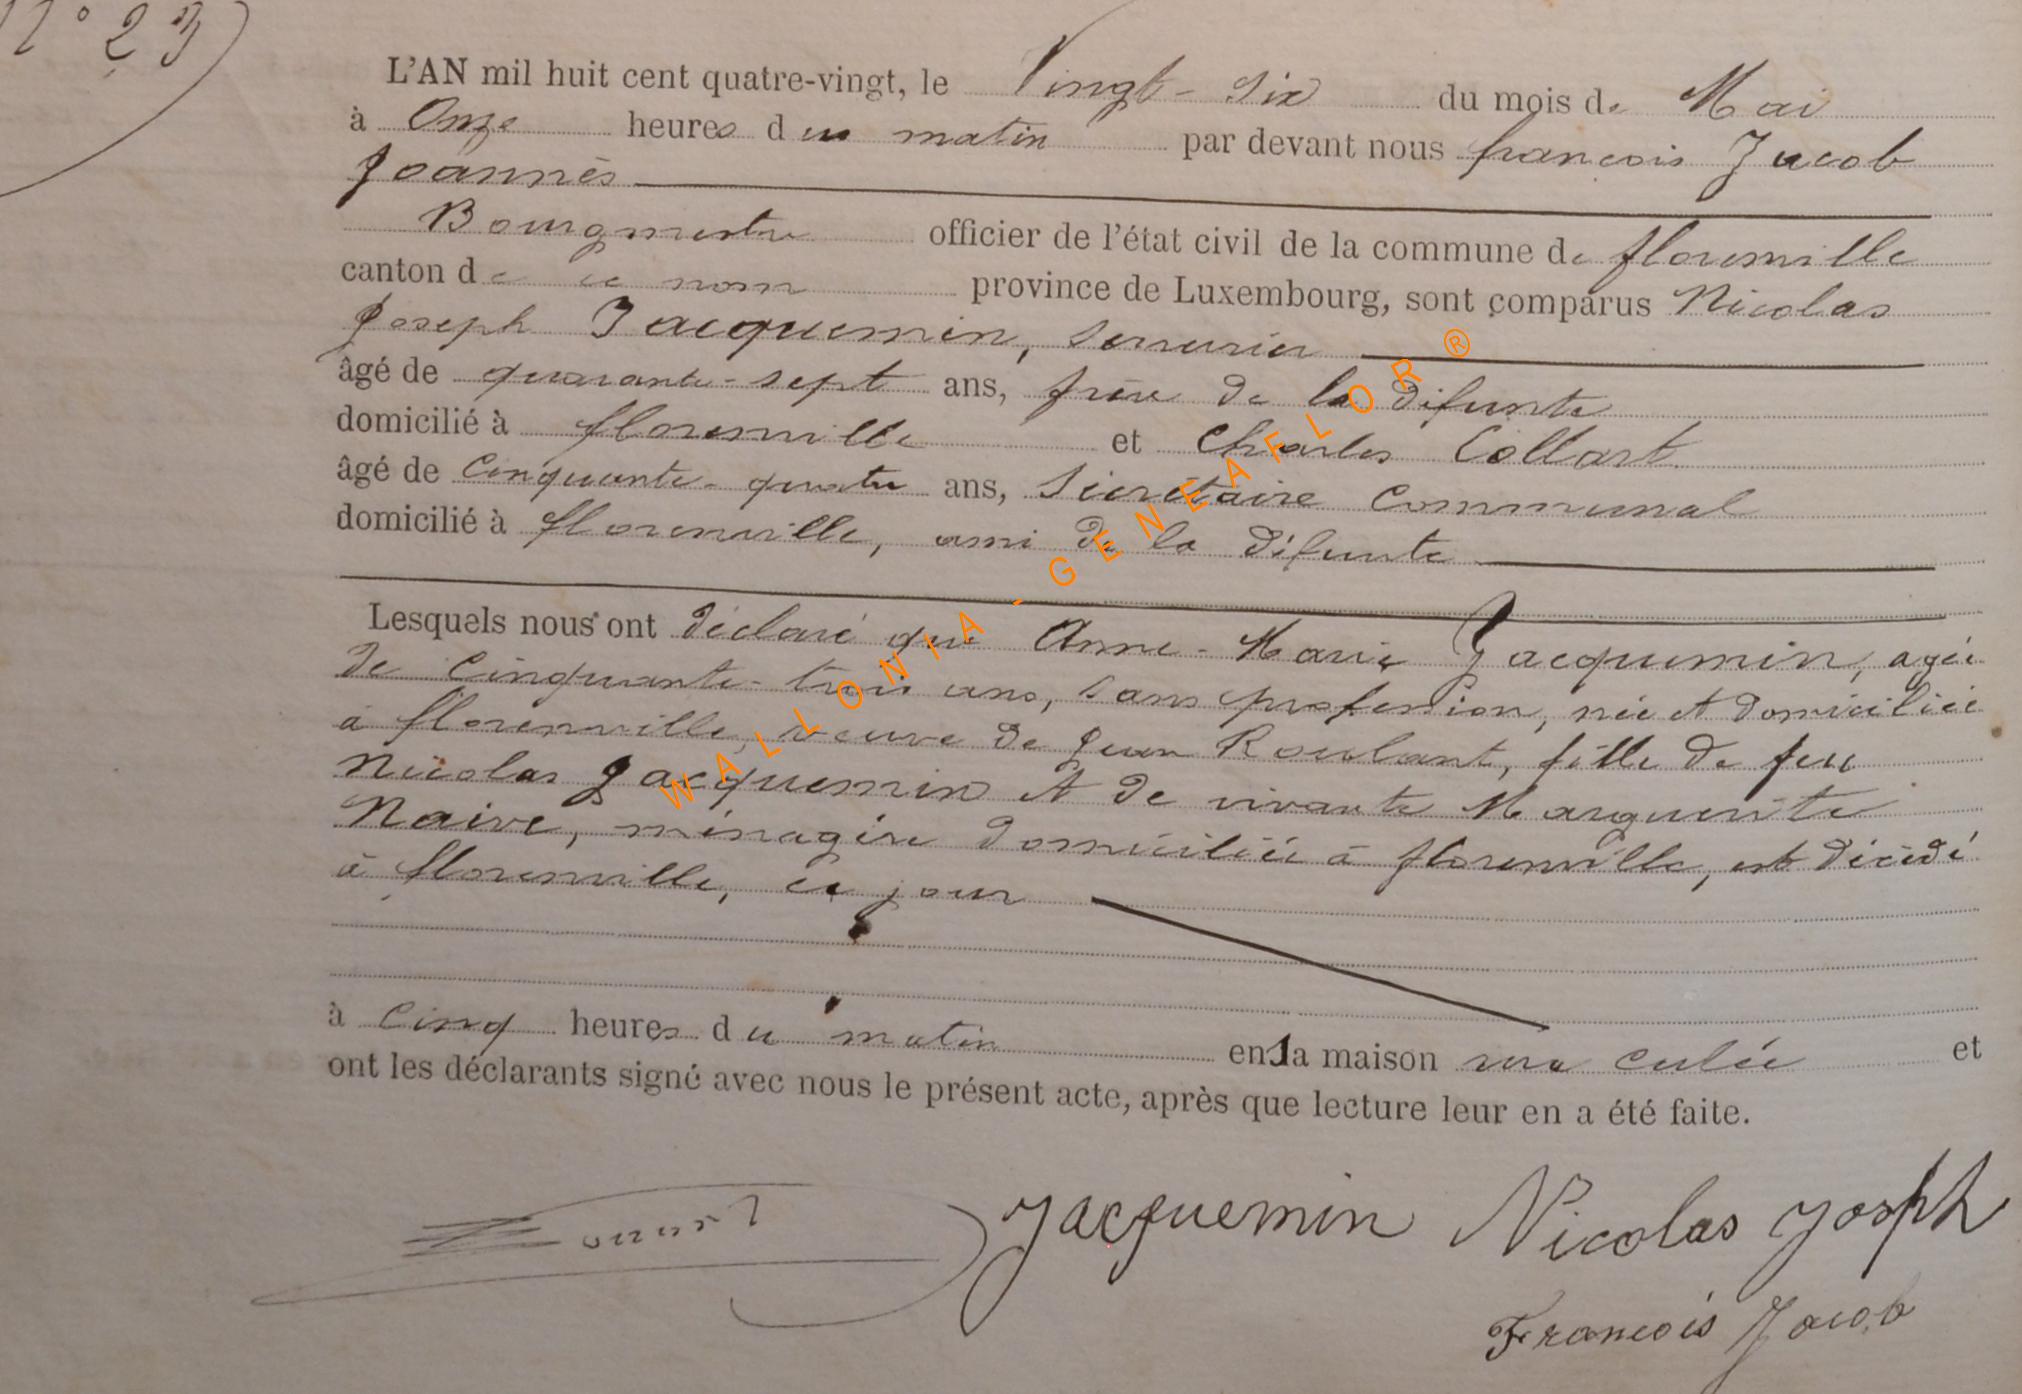 N° 23
L'AN mil huit cent quatre-vingt, le Vingt-Six du mois de Mai
à Onze heures du matin par devant nous françois Jacob
Joannès
Bourgmestre officier de l'état civil de la commune de florenville
canton de ce nom province de Luxembourg, sont comparus Nicolas
Joseph Jacquemin, serrurier
âgé de quarante-sept ans, frère de la défunte
domicilié à florenville et Charles Collart
âgé de Cinquante-quatre ans, Sécrétaire Communal
domicilié à florenville, ami de la défunte
Lesquels nous ont déclaré que Anne-Marie Jacquemin, agée
de Cinquante-trois ans, sans profession, née et domiciliée
à florenville, veuve de Jean Roulant, fille de feu
Nicolas Jacquemin et de vivante Marguerite
Naive, ménagère domiciliée à florenville, est décédé
à florenville, ce jour
à Cinq heures du matin en la maison
ont les déclarants signé avec nous le présent acte, après que lecture leur en a été faite. et
Jacquemin Nicolas Joseph
François Jacob
WALLONIA-GENEAFLOR®